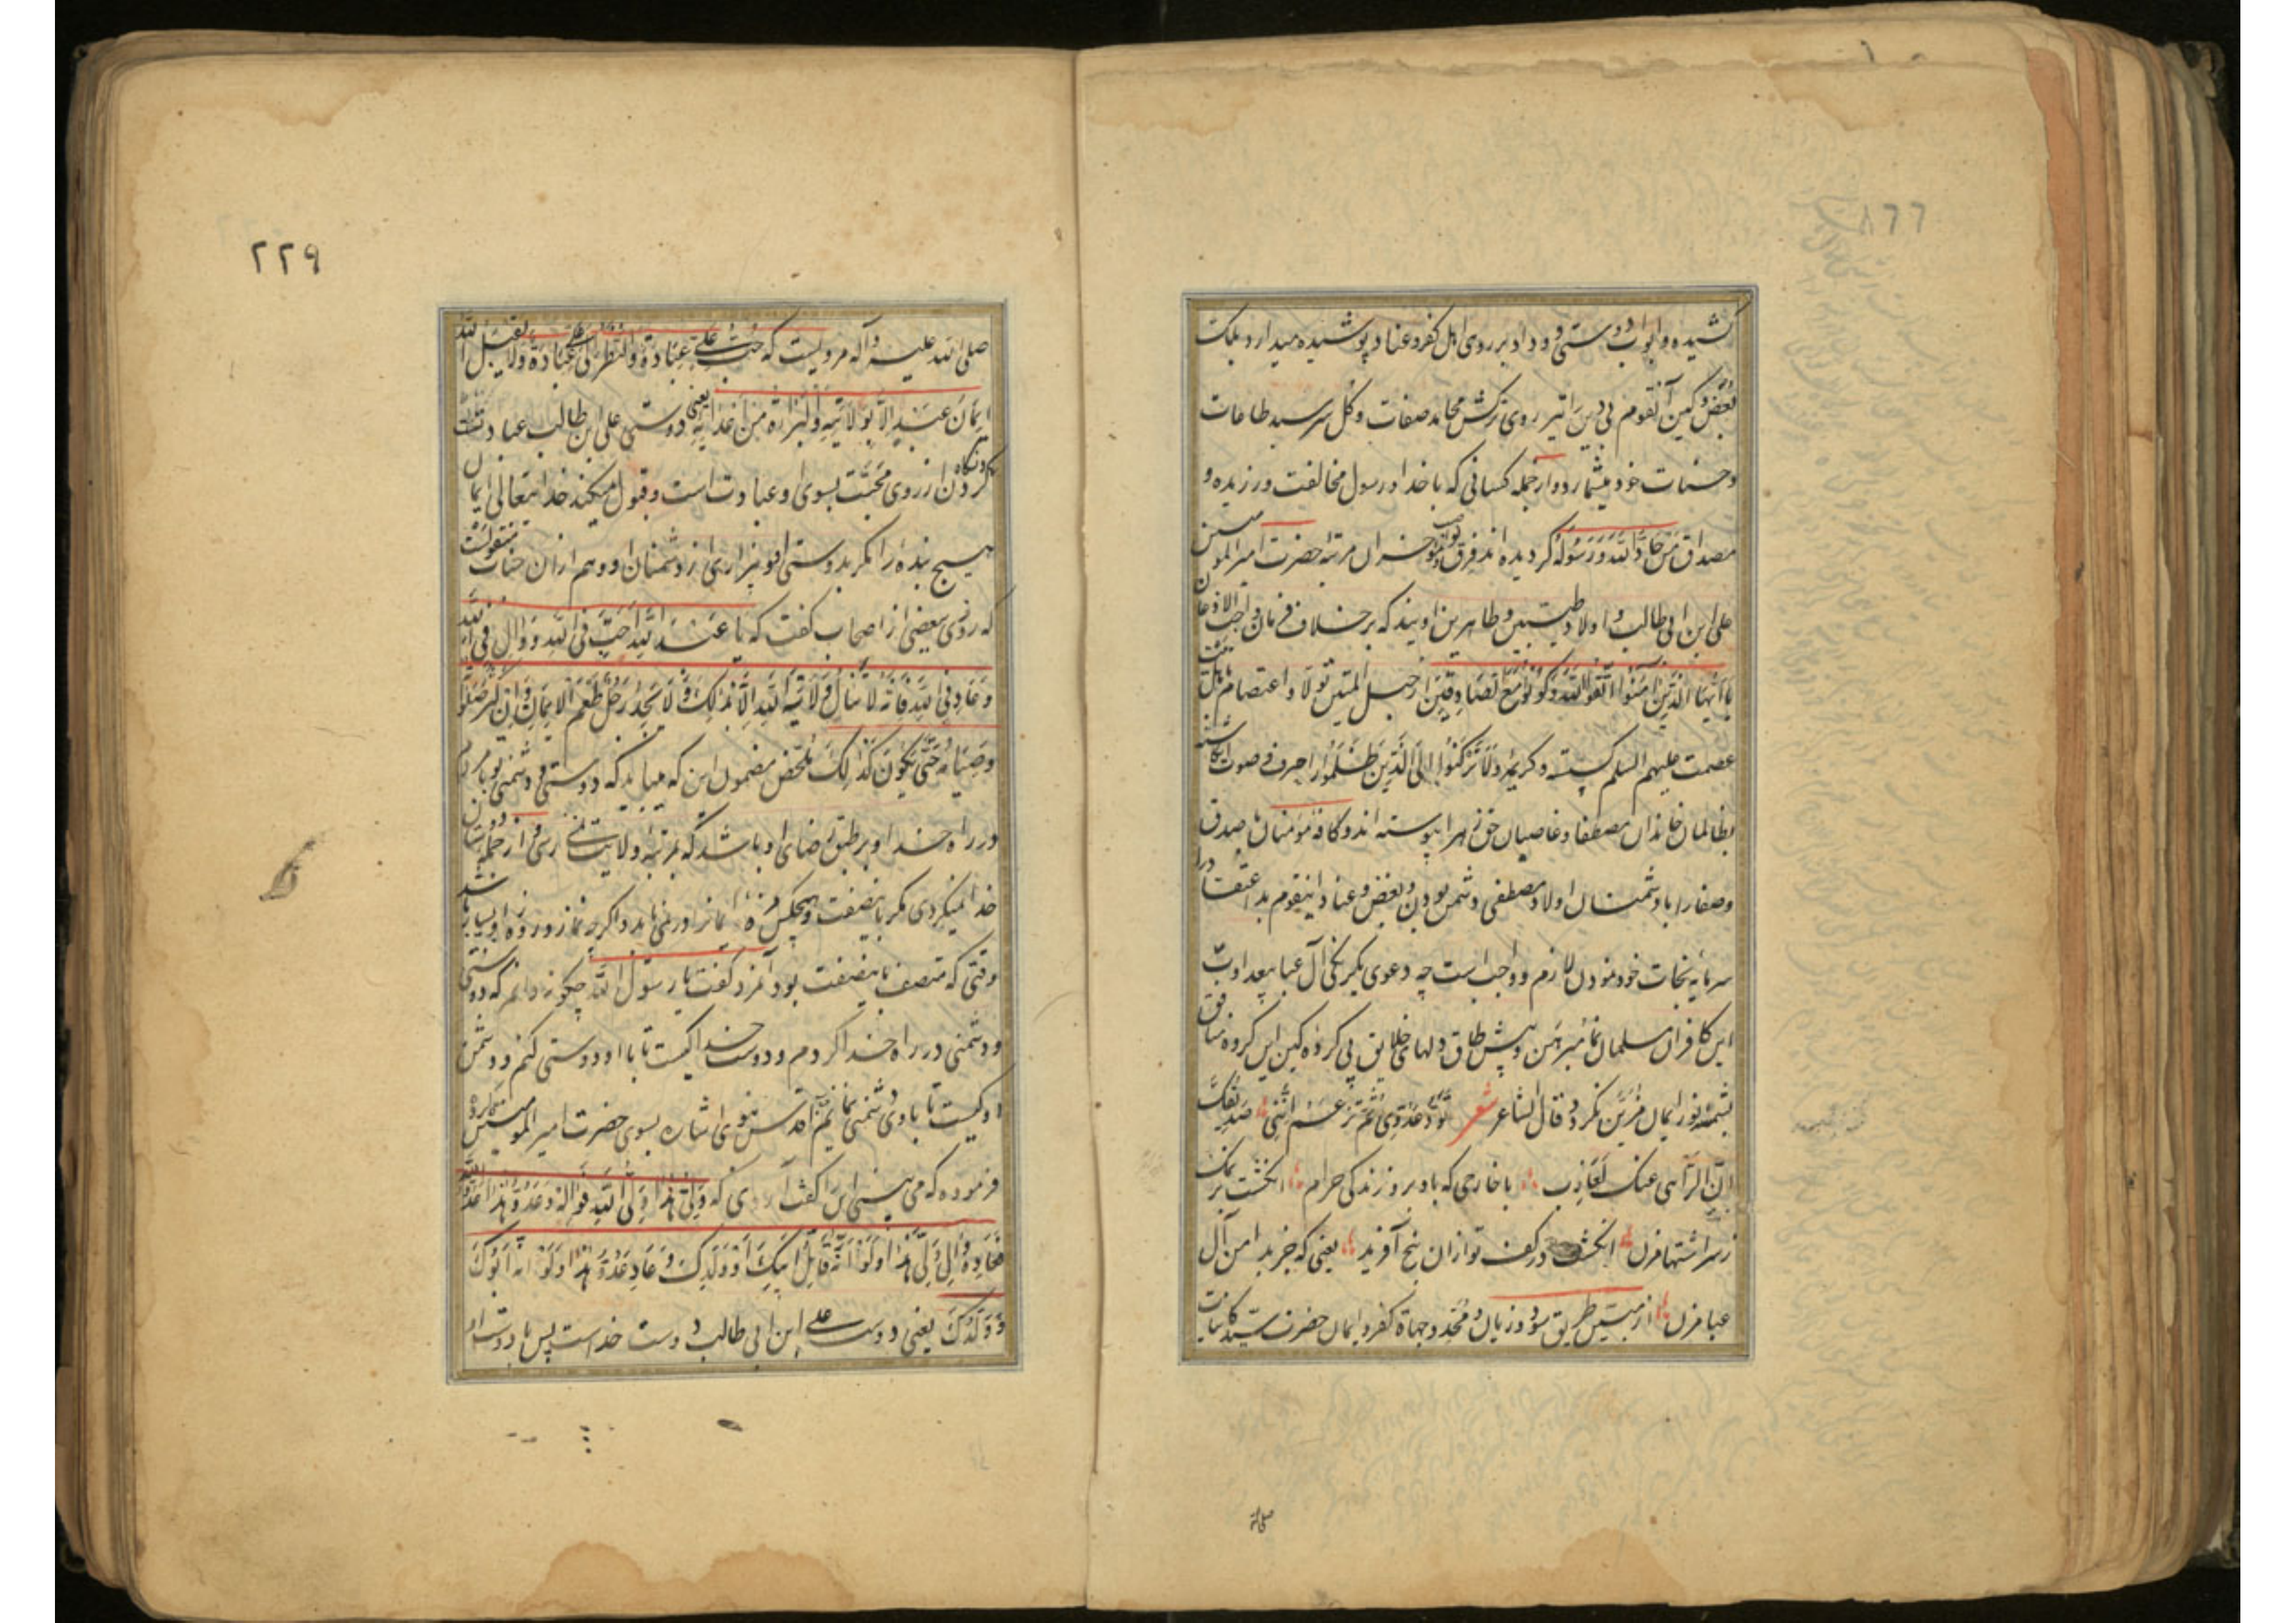 کشیده و ابواب دوستی و وداد بر روی اهل کفر و عناد پوشیده میدارد بلکه
بغض و کین آنقوم بی دین را تیر روی ترکش محامد صفات و گل سرسبد طاعات
و حسنات خود میشمارد و از جمله کسانی که با خدا و رسول مخالفت ورزیده و
مصداق مَنْ حَادَّ اللّهَ وَ رَسُولَهُ گردیده اند فرق نواصب و خسران مرتبهٔ حضرت امیر المومنین
علی ابن ابی طالب و اولاد طیبین و طاهرین اویند که بر خلاف فرمان واجب الاذعان
یا اَیُّهَا الَّذینَ امَنُوا اتَّقُوا اللّهَ وَ کُونُوا مَعَ الصّادِقینَ از حبل المتین تولا و اعتصام باهل بیت
عصمت علیهم السلم گسسته و کریمهٔ وَلا تَرْکَنُوا اِلَی الَّذینَ ظَلَمُوا را حرف فی صوت انگاشته
بظالمان خاندان مصطفا و غاصبان حق زهرا پیوسته اند و کافهٔ مؤمنان با صدق
و صفا را با دشمنان اولاد مصطفی دشمن بودن و بغض و عناد اینقوم بد اعتقاد را
سرمایه نجات خود نمودن لازم و واجب است چه دعوی یکرنگی آل عبا بیعداوت
این کافران مسلمان نما مبرهن و پیش طاق دلهای خلایق بی کروه کین این گروه منافق
بشمسهٔ نور ایمان مزین نگردد و قال الشاعر شعر تَوَدُّ عَدُوّی ثُمَّ تَزْعَمُ اَنَّنی صَدیقُکَ
اِنَّ الرَّأیَ عَنْکَ لَعازِبُ با خاری که باد بر روز زندگی حرام انگشت بر نمک
زسر اشتها مزن انگشت در کف تو از ان پنج آفرید یعنی که جز بدامن آل
عبا مزن از مبین طریق سود و زیان و محدد جهاة کفر و ایمان حضرت سید کاینات
صلی الله
٢٢٩
صلی الله علیه و آله مرویست که حُبُّ عَلیٍّ عِبادَةٌ وَ النَّظَرُ اِلی عَلیٍّ عِبادَةٌ وَ لا یَقْبَلُ اللّهُ
ایمانَ عَبْدٍ اِلّا بِوِلایَتِهِ وَ الْبَرائَةِ مِنْ اَعْدائِهِ یعنی دوستی علی ابن طالب عبادتست
و نگاه کردن از روی محبت بسوی او عبادت است و قبول نمیکند خدایتعالی ایمان
هیچ بنده را مگر بدوستی او و بیزاری از دشمنان او و هم از ان جناب منقولست
که روزی ببعضی از اصحاب گفت که یا عَبْدَ اللّهِ اَحِبَّ فِی اللّهِ وَ والِ فِی اللّهِ
وَ عادِ فِی اللّهِ فَاِنَّهُ لا تَنالُ وِلایَةَ اللّهِ اِلّا بِذلِکَ وَ لا یَجِدُ رَجُلٌ طَعْمَ الْایمانِ وَ اِنْ کَثُرَ صَلوتُهُ
وَ صِیامُهُ حَتّی یَکُونَ کَذلِکَ ملخص مضمون این که میباید که دوستی و دشمنی تو با مردم
در راه خدا و بر طبق رضای او باشد که بمرتبهٔ ولایت نمی رسی و از جمله دوستان
خدا نمیگردی مگر باینصفت و هیچکس مزهٔ ایمانرا در نمی یابد و اگرچه نماز و روزه او بسیار باشد
وقتی که متصف باینصفت بود آنمرد گفت یا رسول الله چگونه دانم که دوستی
و دشمنی در راه خدا کردم و دوست خدا کیست تا با او دوستی کنم و دشمن
او کیست تا با وی دشمنی نمایم اقدس نبوی اشاره بسوی حضرت امیر المومنین
فرموده که می بینی این را گفت آری که وَلِیُّ هذا وَلِیُّ اللّهِ فَوالِهِ وَ عَدُوُّ هذا عَدُوُّ اللّهِ
فَعادِهِ وَ والِ وَلِیَّ هذا وَ لَوْ اَنَّهُ قاتِلُ اَبیکَ وَ وَلَدِکَ وَ عادِ عَدُوَّ هذا وَ لَوْ اَنَّهُ اَبُوکَ
وَ وَلَدُکَ یعنی دوست علی ابن ابی طالب دوست خداست پس با دوست او